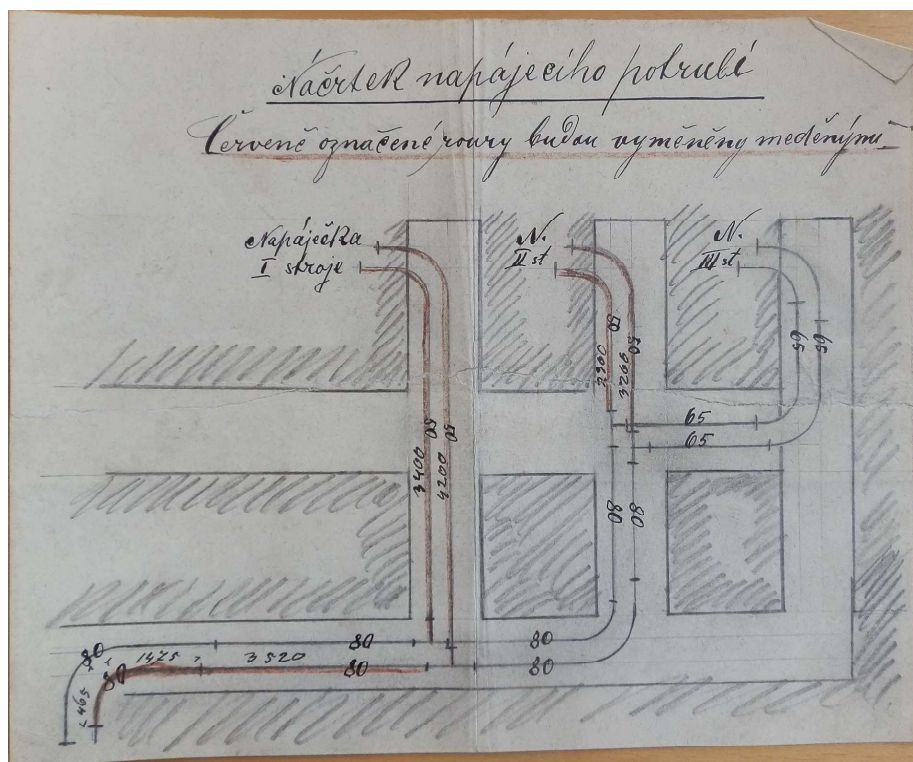 Náčrtek napájecího potrubí
Červeně označené roury budou vyměněny měděnými
Napáječka
I stroje
N.
II st
N.
III st
50
50
2900
3200
65
65
65
65
50
50
3400
4200
80
80
80
80
80
80
80
80
1475
3520
465